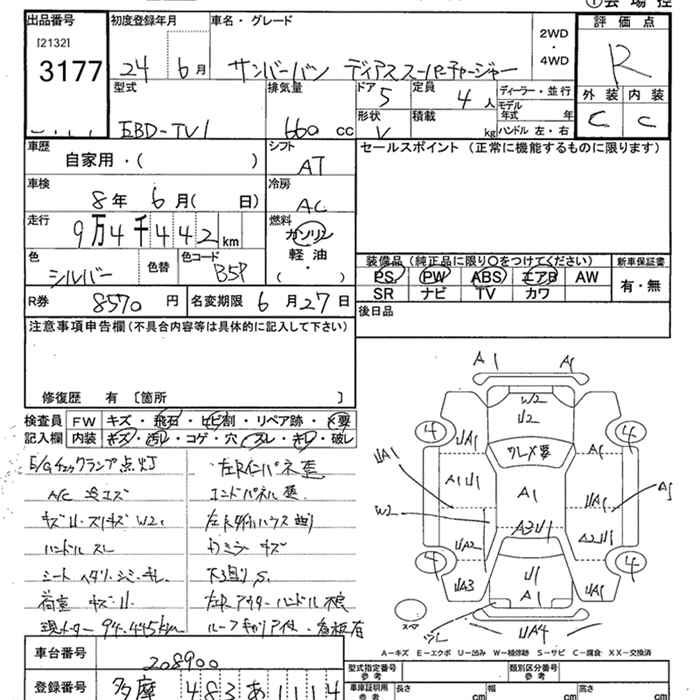 ①会場控
出品番号
[2132]
3177
初度登録年月
24 6月
車名・グレード
サンバーバン ディアススーパーチャージャー
2WD
・
4WD
評価点
R
外装 内装
C C
型式
EBD-TV1
排気量
660 cc
ドア
5
定員
4人
ディーラー・並行
モデル年式 年
ハンドル 左・右
形状
V
積載
kg
車歴
自家用・( )
シフト
AT
セールスポイント (正常に機能するものに限ります)
車検
8年 6月( 日)
冷房
AC
走行
9万4千442km
燃料
ガソリン
軽油
・
( )
色
シルバー
色替
色コード
B5P
装備品 (純正品に限り○をつけてください)
PS PW ABS エアB AW
SR ナビ TV カワ
新車保証書
有・無
R券 8570円
名変期限 6月27日
後日品
注意事項申告欄(不具合内容等は具体的に記入して下さい)
修復歴 有 〔箇所 〕
検査員
記入欄
FW キズ・飛石・ヒビ割・リペア跡・×要
内装 キズ・汚レ・コゲ・穴・スレ・キレ・破レ
E/Gチェックランプ点灯
A/C 冷エズ
キズ・U・スリキズ W2
ハンドル スレ
シート ヘタリ・シミ・キレ
荷室 キズ・U
現メーター 94,445km
左Rインパネ歪
エンドパネル歪
左Rタイヤハウス曲り
カミラー キズ
下廻り S
左R アウターハンドル不良
ルーフキャリア付・看板有
A1 A1
W2
U2
4 4
UA1
フレ×要
UA1
A1U1
A1
UA1
A1
W2
A3U1
UA2
A2U1
4 4
UA3
U1
A1
UA1
スペア
UA4
A-キズ E-エクボ U-凹み W-補修跡 S-サビ C-腐食 XX-交換済
車台番号
208900
登録番号
多摩 483 あ 1114
型式指定番号
参考
類別区分番号
参考
車庫証明用
参考
長さ cm
幅 cm
高さ cm